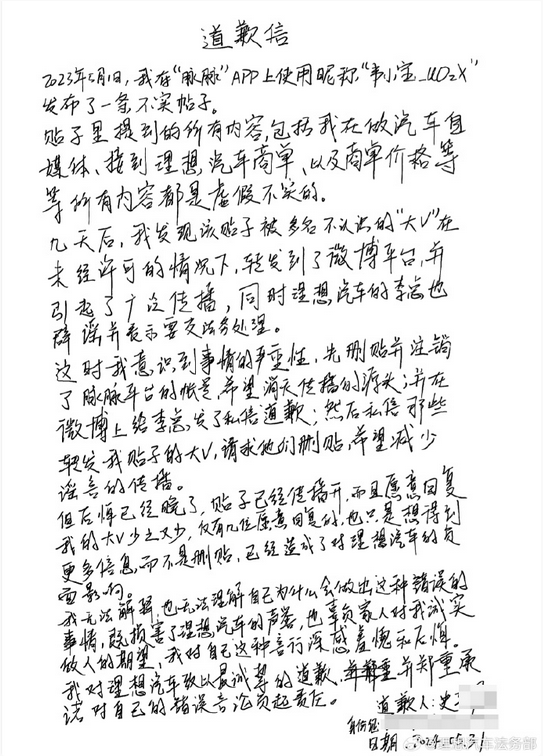 道歉信
2023年5月1日,我在“脉脉”APP上使用昵称“韦小宝_UO2X”
发布了一条不实帖子。
贴子里提到的所有内容,包括我在做汽车自
媒体、接到理想汽车商单、以及商单价格等
等所有内容都是虚假不实的。
九天后,我发现该贴子被多名不认识的“大V”在
未经许可的情况下,转发到了微博平台,并
引起了广泛传播,同时理想汽车的李总也
辟谣并表示要交法务处理。
这时我意识到事情的严重性,先删贴并注销
了脉脉平台的帐号,希望消灭传播的源头;并在
微博上给李总发了私信道歉;然后私信那些
转发我贴子的大V,请求他们删贴,希望减少
谣言的传播。
但后悔已经晚了,贴子已经传播开,而且愿意回复
我的大V少之又少,仅有几位愿意回复的,也只是想得到
更多信息,而不是删贴,已经造成了对理想汽车的负
面影响。
我无法解释,也无法理解自己为什么会做出这种错误的
事情,既损害了理想汽车的声誉,也辜负家人对我诚实
做人的期望,我对自己这种言行深感羞愧和后悔。
我对理想汽车致以最诚挚的道歉,并郑重承
诺对自己的错误言论负起责任。
道歉人:史
身份证
日期:2024.05.31